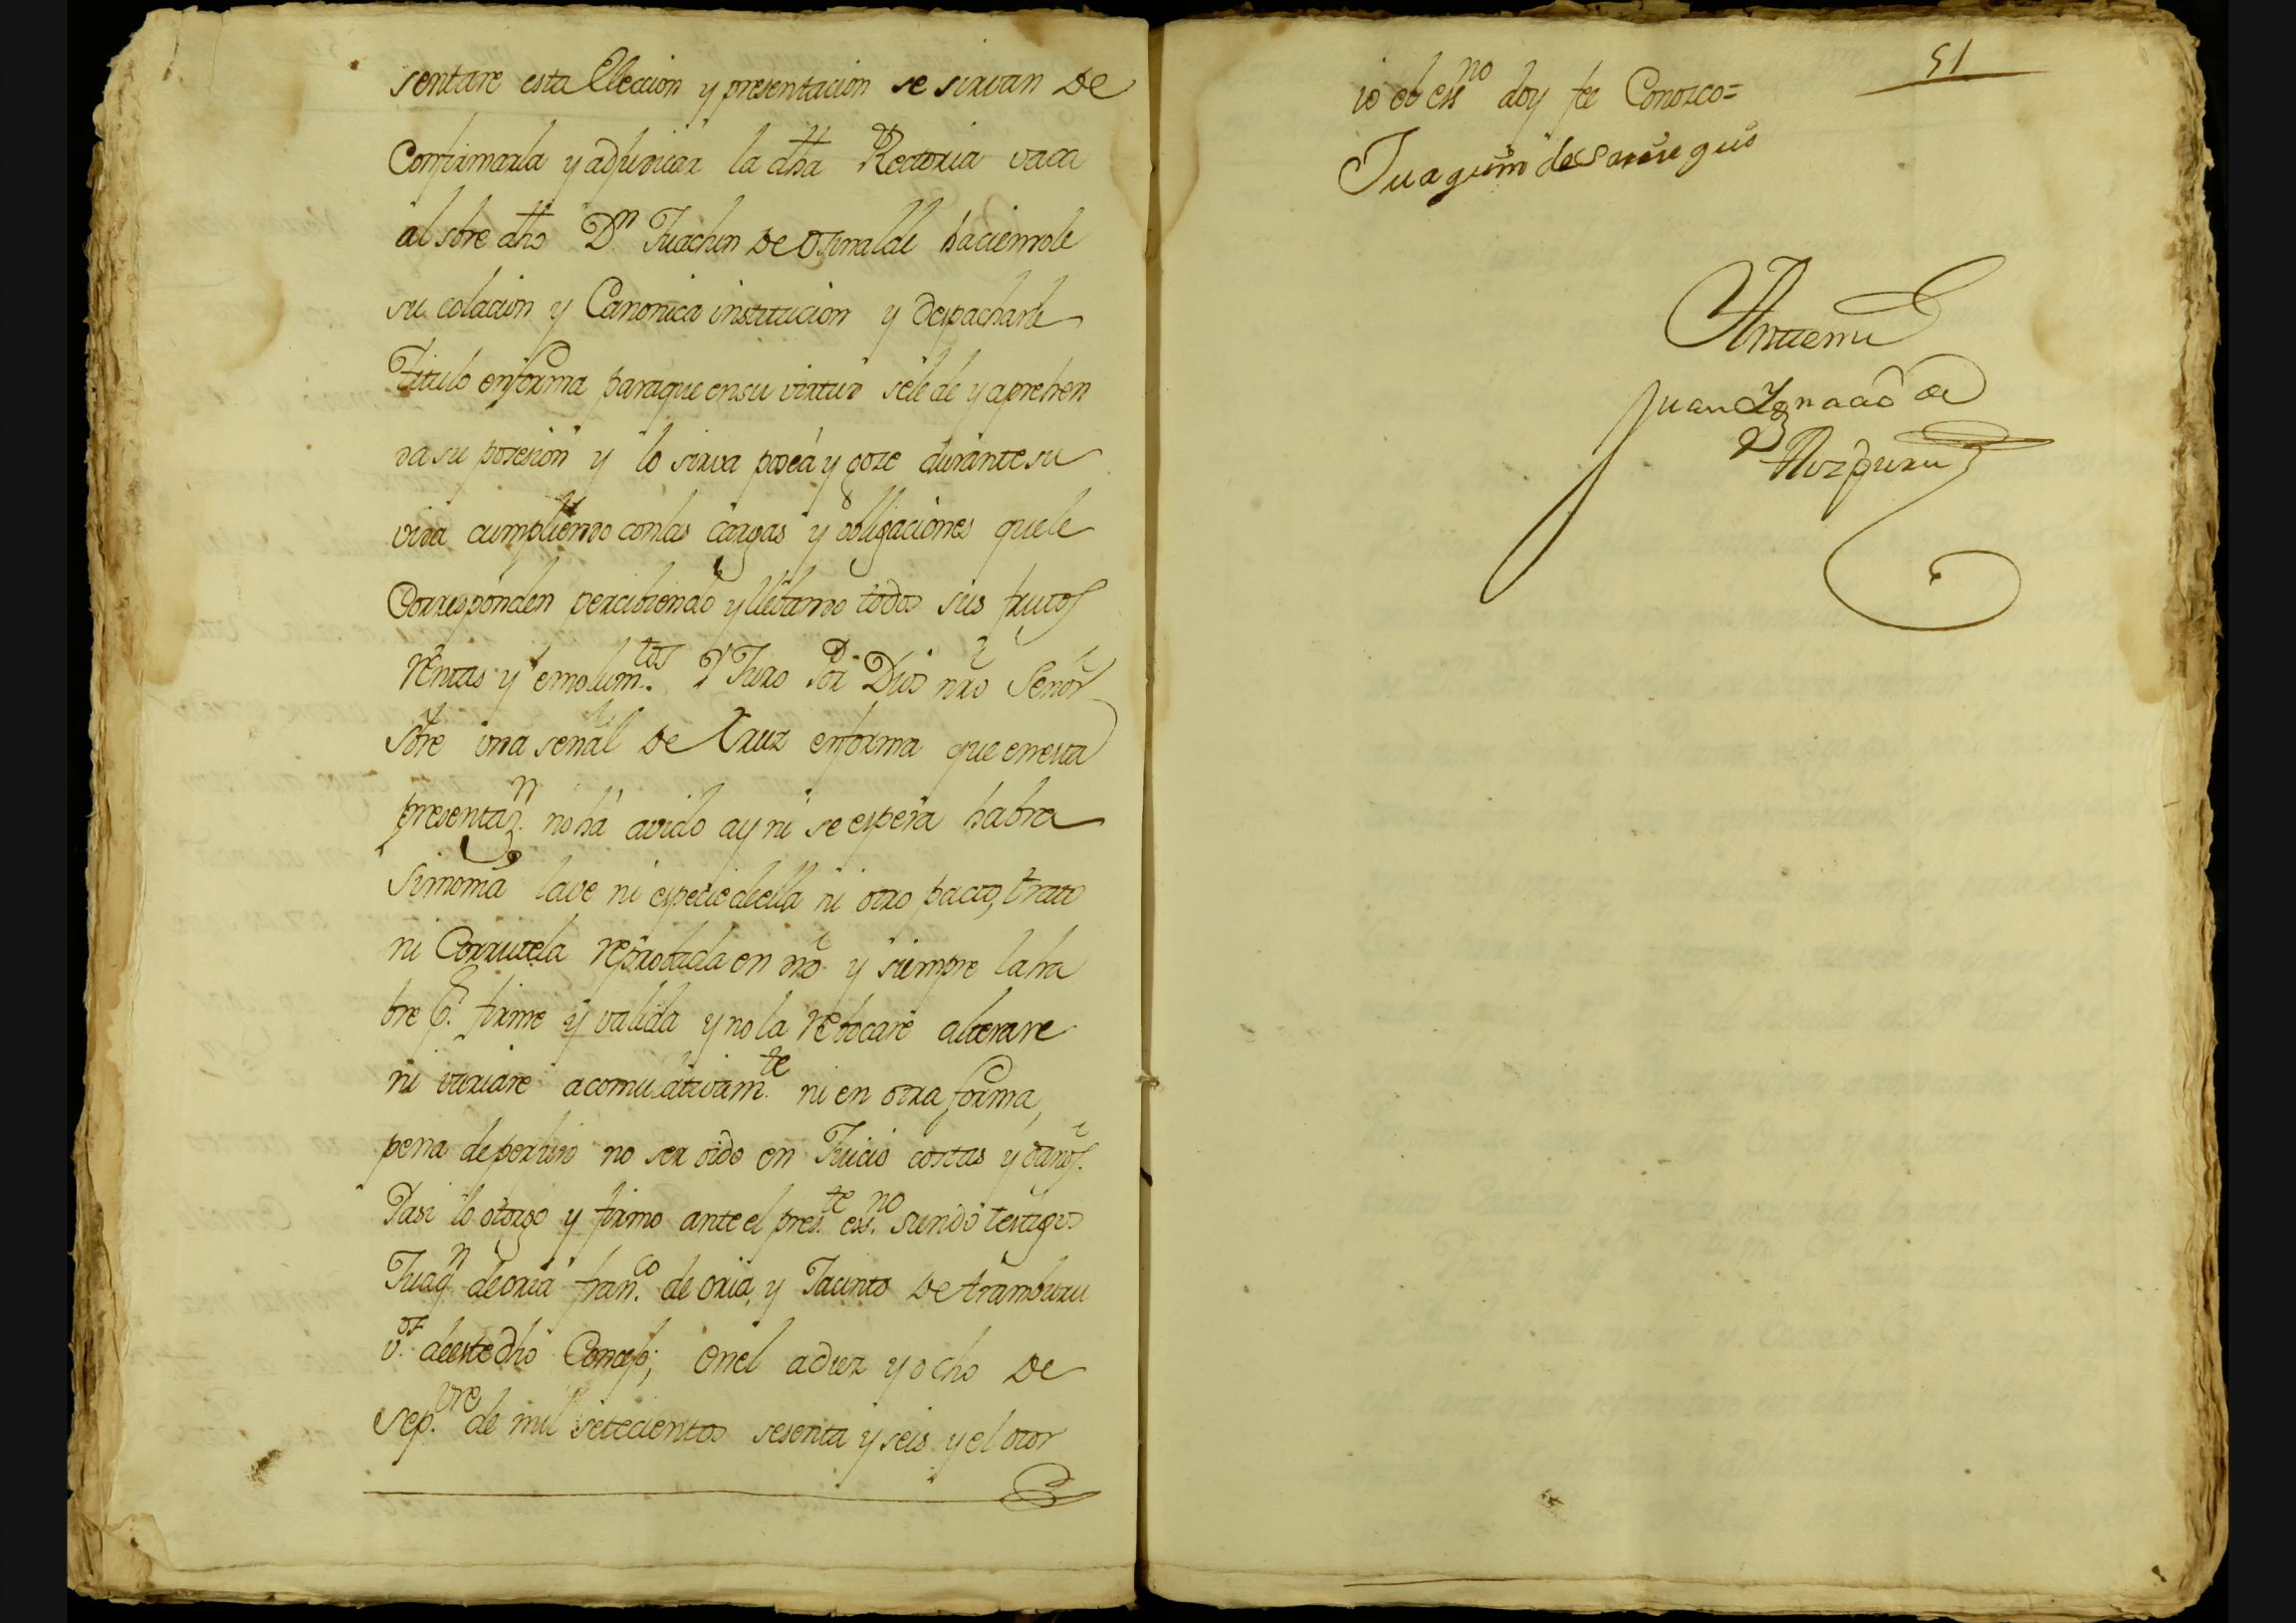 sentare esta Eleccion y presentacion se sirvan de
Confirmarla y adjudicar la dha Rectoria vaca
al sobre dho Dn Juachin de Ostinalde haciendole
su colacion y Canonica institucion y despacharle
Titulo enforma paraque ensu virtud sele de y aprehen
da su posesion y lo sirva poséa y goze durante su
vida cumpliendo conlas cargas y obligaciones quele
Corresponden perciviendo y llebando todos sus frutos
rentas y emolumtos. Y Juro Por Dios nro Señor
Sbre una señal de Cruz enforma que enesta
presentazn. no há avido ay ni se espera habra
Simonia lave ni especie deella ni otro pacto, trato
ni Corrutela reprobada en dro y siempre la ha
bre Pr. firme y valida y no la rebocaré alterare
ni variare acomulativamte. ni en otra forma,
pena de perjuro no ser oido en Juicio costas y daños.
Yasi lo otorgo y firmo ante el preste. essno. siendo testigos
Juaqn deoria franco. de oria, y Jacinto de Aramburu
vos. deeste dho Concejo; Enel a diez y ocho de
Sepvre. de mil setecientos sesenta y seis y el otor
51
io el essno doy fee Conozco=
Juaquin de
Antemi
Juan Ignacio de